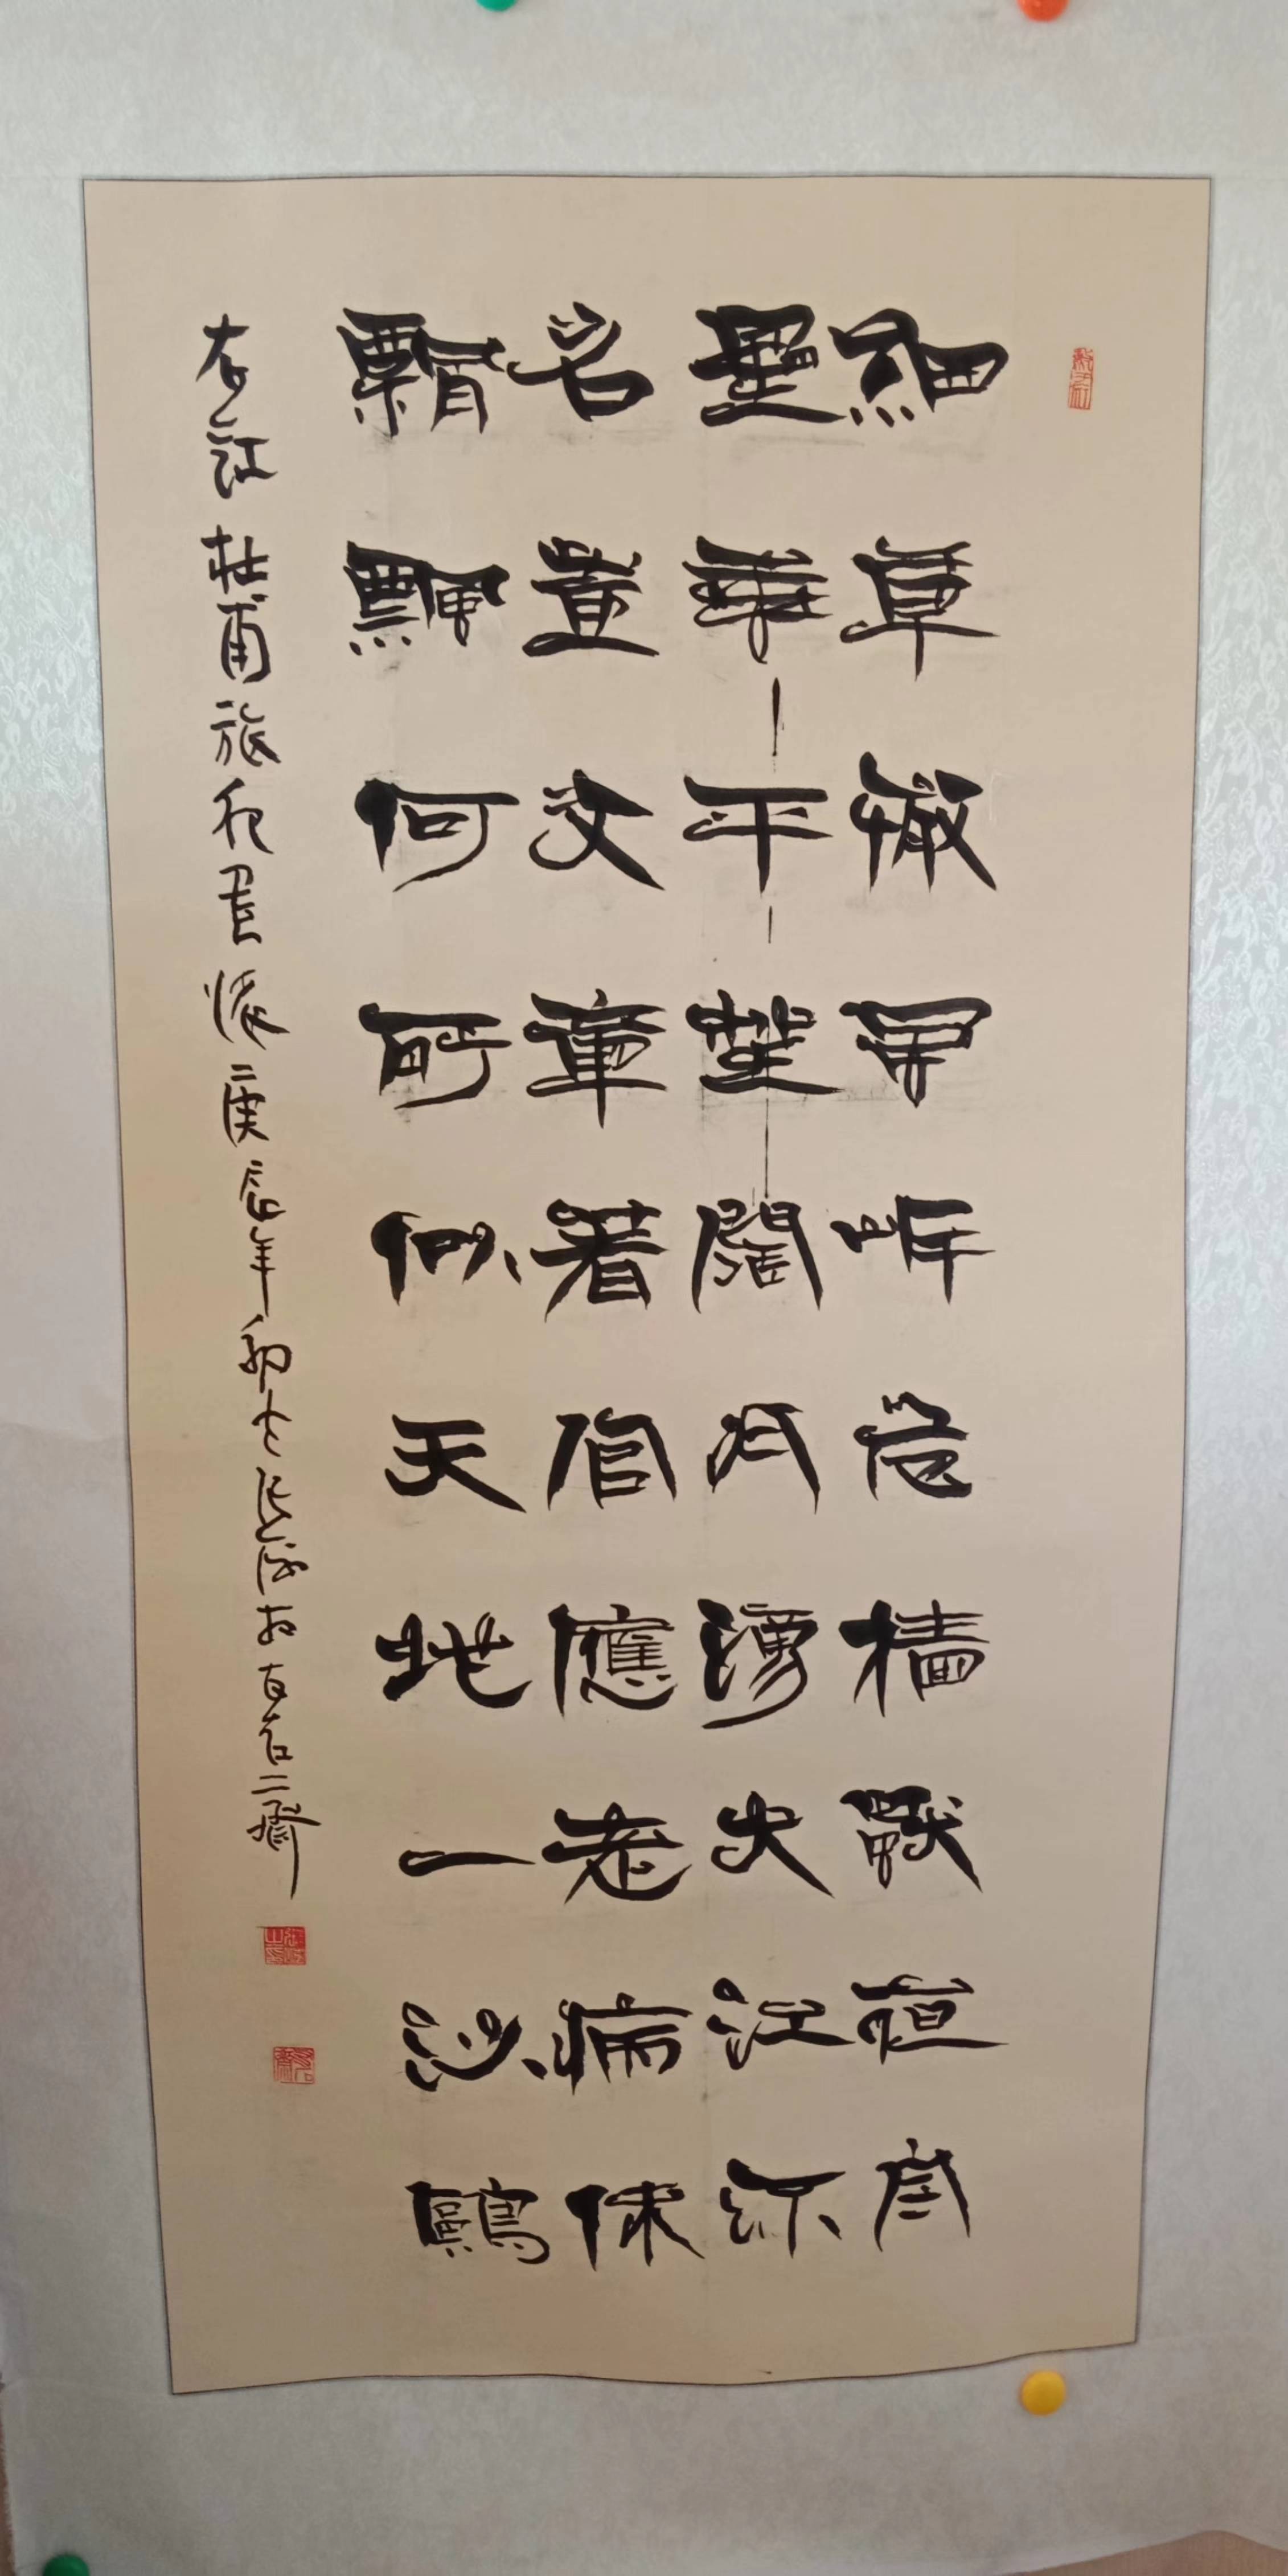 細草微風岸危檣獨夜舟
星垂平野闊月湧大江流
名豈文章著官應老病休
飄飄何所似天地一沙鷗
右 杜甫旅夜書懷庚辰年 於 石二齋